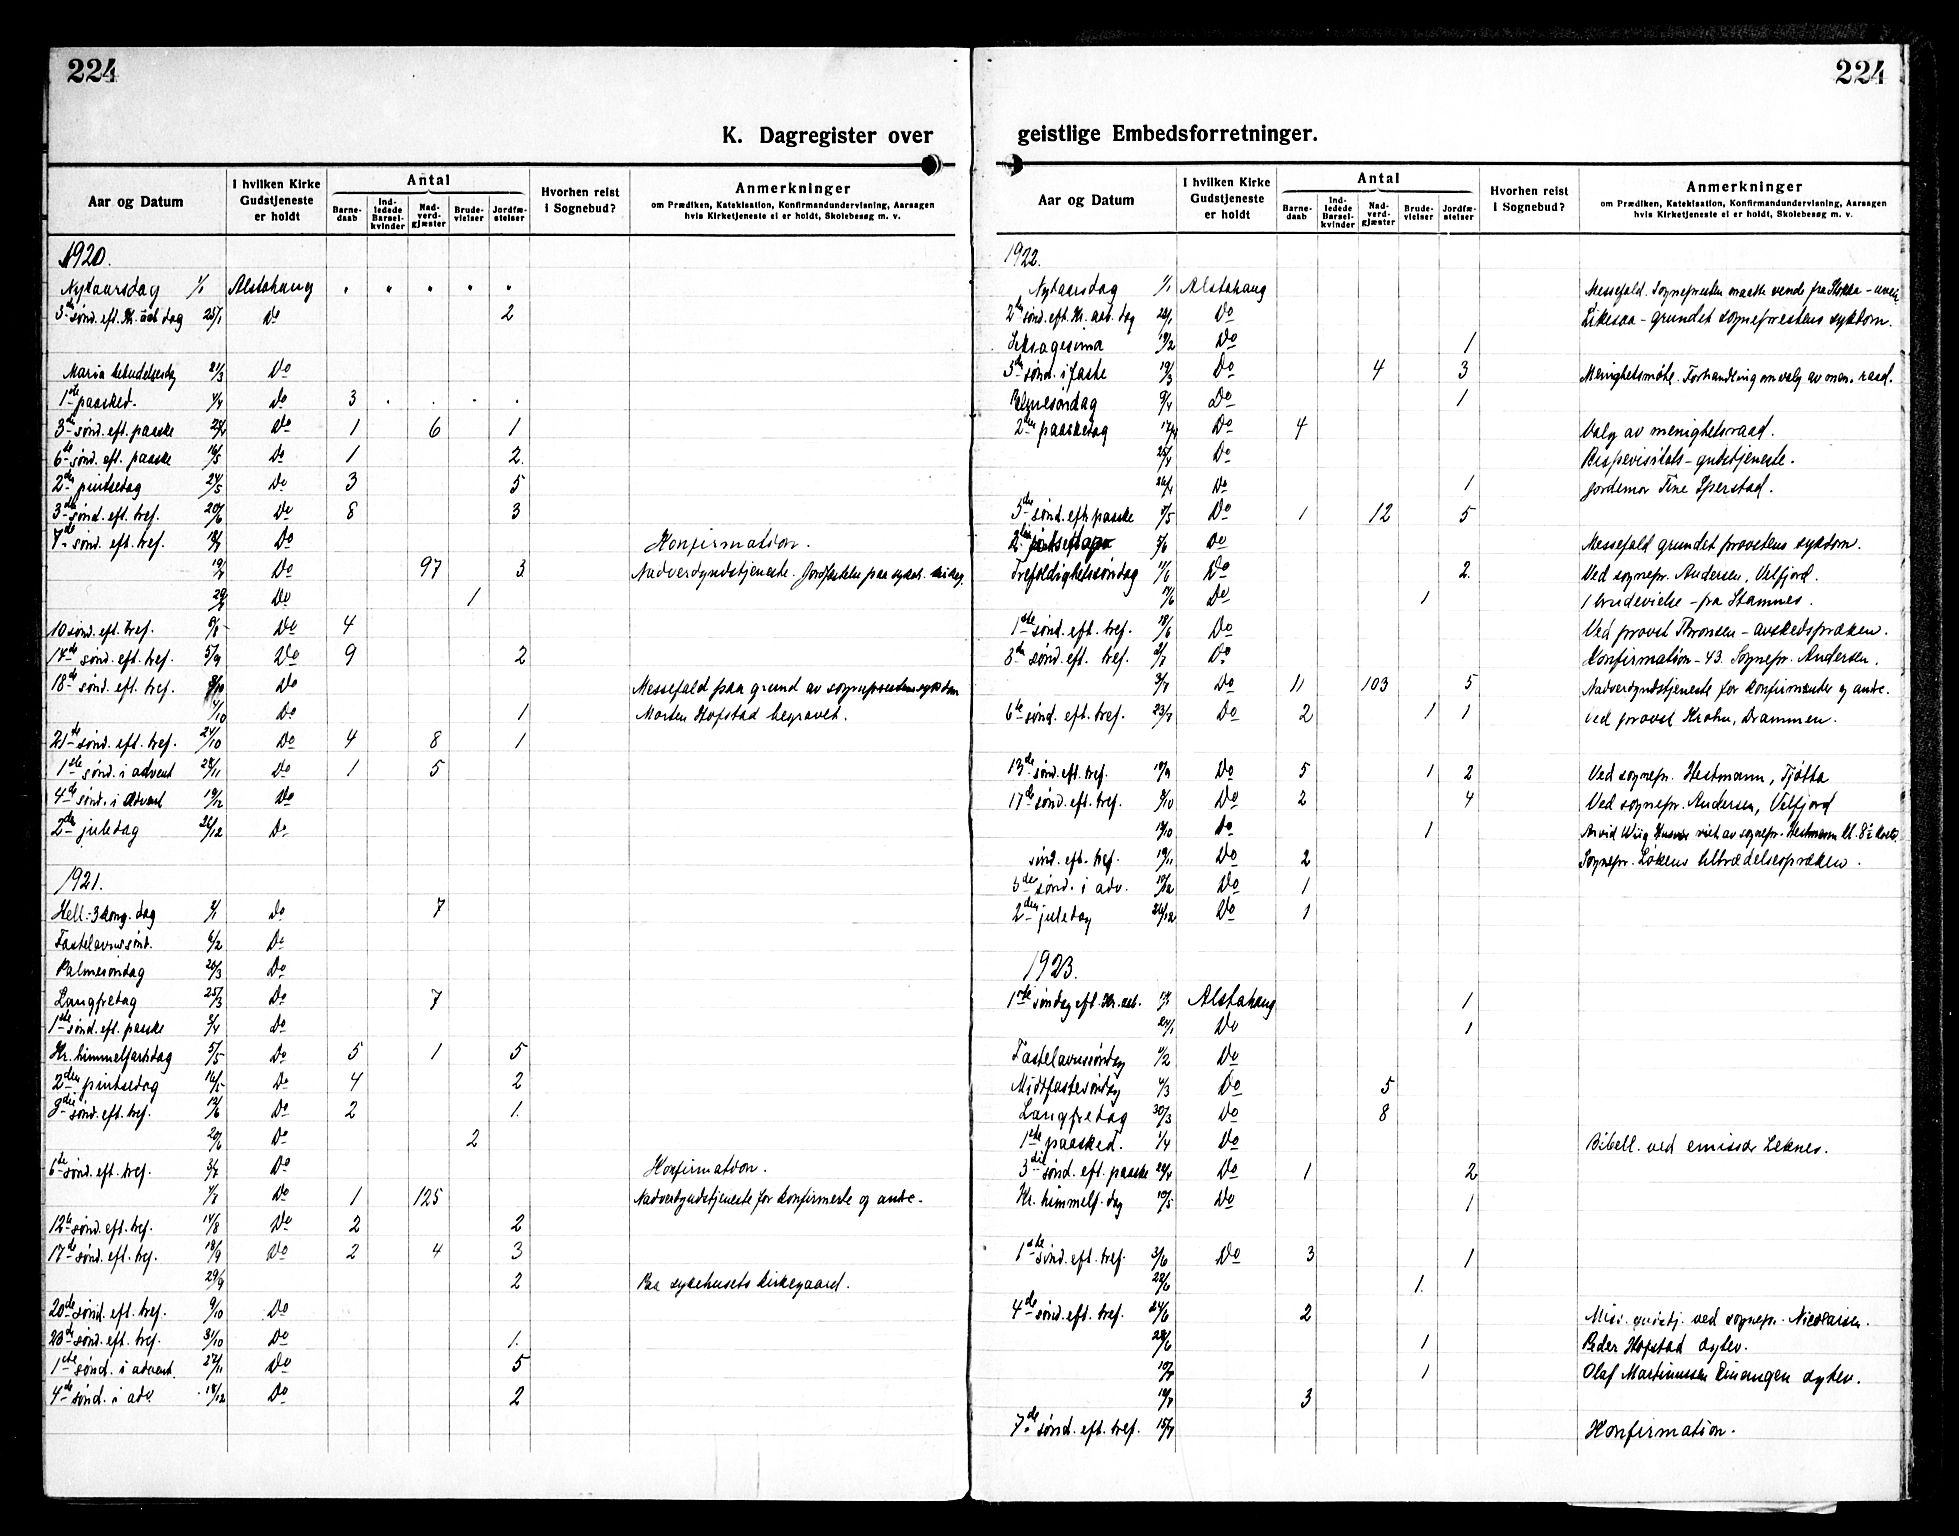 224
K. Dagregister over
Aar og Datum
I hvilken Kirke Gudstjeneste er holdt
Antal
Barnedaab
Indledede Barselkvinder
Nadverdgjæster
Brudevielser
Jordfæstelser
Hvorhen reist i Sognebud?
Anmerkninger
om Prædiken, Katekisation, Konfirmandundervisning, Aarsagen
hvis Kirketjeneste ei er holdt, Skolebesøg m. v.
1920.
Nytaarsdag 1/1 Alstahaug " " " " "
3die sønd. eft. Kr. aab. dag 25/1 Do 2
Maria budelsesdag 21/3 Do
1ste paasked. 4/4 Do 3 . . . .
3die sønd. eft. paaske 25/4 Do 1 6 1
6te sønd. eft. paaske 16/5 Do 1 2
2den pintsedag 24/5 Do 3 5
3die sønd. eft. tref. 20/6 Do 8 3
7de sønd. eft. tref. 18/7 Do Konfirmation.
19/7 Do 97 3 Nadverdgudstjeneste. Jordfæstelse paa sykeh. kirkeg.
29/7 Do 1
10 sønd. eft. tref. 8/8 Do 4
14de sønd. eft. tref. 5/9 Do 9 2
18de sønd. eft. tref. 3/10 Do Messefald paa grund av sogneprestens sykdom
4/10 Do 1 Morten Hofstad begravet.
21de sønd. eft. tref. 24/10 Do 4 8 1
1ste sønd. i advent 28/11 Do 1 5
4de sønd. i advent 19/12 Do
2den juledag 26/12 Do
1921.
Hell. 3 kong. dag 2/1 Do 7
Fastelavnssønd. 6/2 Do
Palmesøndag 20/3 Do
Langfredag 25/3 Do 7
1ste sønd. eft. paaske 3/4 Do
Kr. himmelfartsdag 5/5 Do 5 1 5
2den pintsedag 16/5 Do 4 2
3die sønd. eft. tref. 12/6 Do 2 1.
20/6 Do 2
6te sønd. eft. tref. 3/7 Do Konfirmation.
4/7 Do 1 125 Nadverdgudstjeneste for konfirmerte og andre.
12te sønd. eft. tref. 14/8 Do 2 2
17de sønd. eft. tref. 18/9 Do 2 4 3
29/9 2 Paa sykehusets kirkegaard.
20de sønd. eft. tref. 9/10 Do
23de sønd. eft. tref. 30/10 Do 1.
1ste sønd. i advent. 27/11 Do 5
4de sønd. i adv. 18/12 Do 2
224
geistlige Embedsforretninger.
Aar og Datum
I hvilken Kirke Gudstjeneste er holdt
Antal
Barnedaab
Indledede Barselkvinder
Nadverdgjæster
Brudevielser
Jordfæstelser
Hvorhen reist i Sognebud?
Anmerkninger
om Prædiken, Katekisation, Konfirmandundervisning, Aarsagen
hvis Kirketjeneste ei er holdt, Skolebesøg m. v.
1922.
Nytaarsdag 1/1 Alstahaug Messefald. Sognepresten maatte vende fra
2den sønd. eft. Kr. aab. dag 22/1 Do Likesaa - grundet sogneprestens sykdom.
Seksagesima 19/2 Do 1
3die sønd. i faste 19/3 Do 4 3 Menighetsmøte. Forhandling om valg av men. raad.
Palmesøndag 9/4 Do 1
2den paaskedag 17/4 Do 4 Valg av menighetsraad.
25/4 Do Bispevisitats-gudstjeneste.
26/4 Do 1 Jordemor Tine Sperstad.
3die sønd. eft. paaske 7/5 Do 1 12 5
2den pintsedag 5/6 Do Messefald grundet provstens sykdom.
Trefoldighetssøndag 11/6 Do 2 Ved sognepr. Andersen, Velfjord.
Do 1 1 brudevielse - fra Stamnes.
1ste sønd. eft. tref. 18/6 Do Ved provst Thronsen - avskedspræken.
3die sønd. eft. tref. 2/7 Do Konfirmation - 43. Sognepr. Andersen.
3/7 Do 11 103 5 Nadverdgudstjeneste for konfirmerte og andre.
6te sønd. eft. tref. 23/7 Do 2 1 1 ved provst Krohn, Drammen.
13de sønd. eft. tref. 10/9 Do 5 1 2 Ved sognepr. Hestmann, Tjøtta
17de sønd. eft. tref. 8/10 Do 2 4 Ved sognepr. Andersen, Velfjord
Do 1 Arvid Wiig viet av sognepr. Hestmann
sønd. eft. tref. 19/11 Do 2 Sognepr. Løkens tiltrædelsespræken.
3die sønd. i adv. Do 1
2den juledag 26/12 Do 1
1923.
1ste søndag eft. Kr. aab. Alstahaug 1
21/1 Do 1
Fastelavnssøndag 11/2 Do
Midtfastesøndag 4/3 Do 5
Langfredag 30/3 Do 8
1ste paasked. 1/4 Do Bibell. ved emissær Leknes.
3die sønd. eft. paaske 22/4 Do 1 2
Kr. himmelf. dag 10/5 Do 1
1ste sønd. eft. tref. 3/6 Do 3 1
22/6 1.
4de sønd. eft. tref. 24/6 2 Miss. gudstj. ved sognepr. Nicolaisen.
1 Peder Hofstad
1 Olaf Martinussen
3
7de sønd. eft. tref. 15/7 Konfirmation.